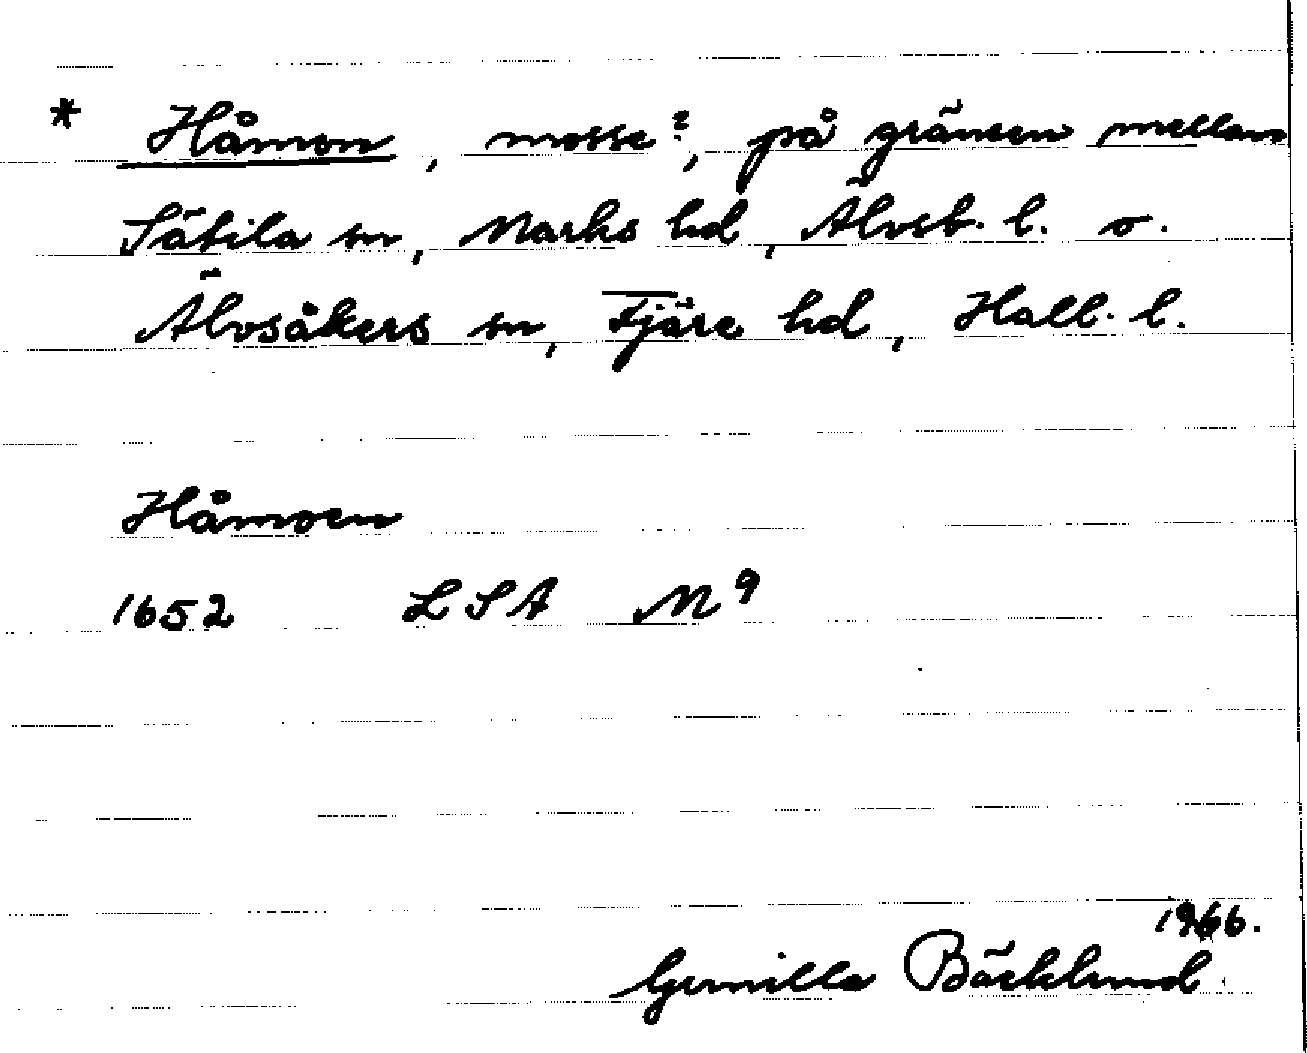 * Håmon, mosse?, på gränsen mellan
Sätila sn, Marks hd, Älvsb. l. o.
Älvsåkers sn, Fjäre hd, Hall. l.
Håmoen
1652 LSA M9
1966.
Gunilla Bäcklund.